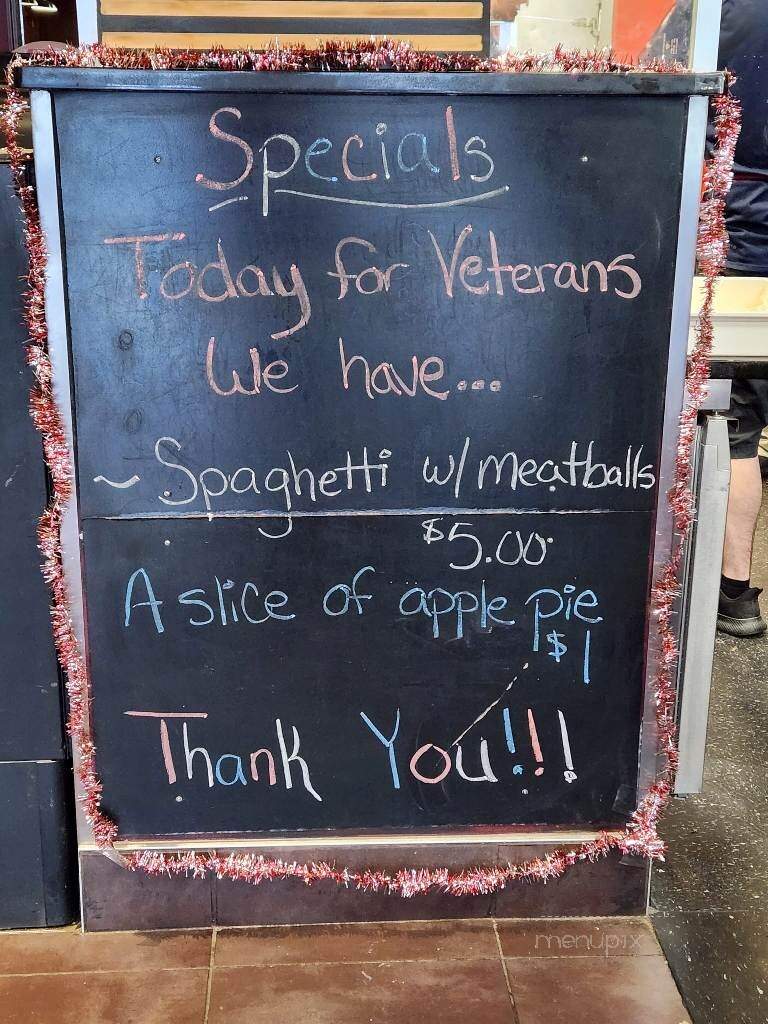 Specials
Today for Veterans
We have...
~ Spaghetti w/ meatballs
$5.00
A slice of apple pie
$1
Thank You!!!
menupix